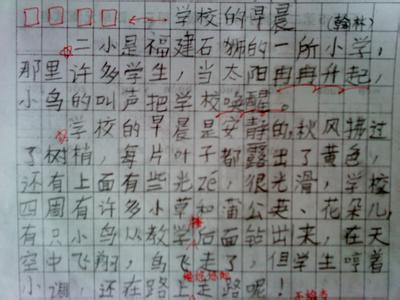 学校的早晨 (翰林)
二小是福建石狮的一所小学，
那里许多学生，当太阳冉冉升起，
小鸟的叫声把学校唤醒。
学校的早晨是安静的，秋风拂过
了树梢，每片叶子都露出了黄色，
还有上面有些光zé，很光滑，学校
四周有许多小草和蒲公英、花朵儿，
有只小鸟从教学后面钻出来，在天
空中飞翔，鸟飞走了，但学生哼着
小调，还在路上走路呢！